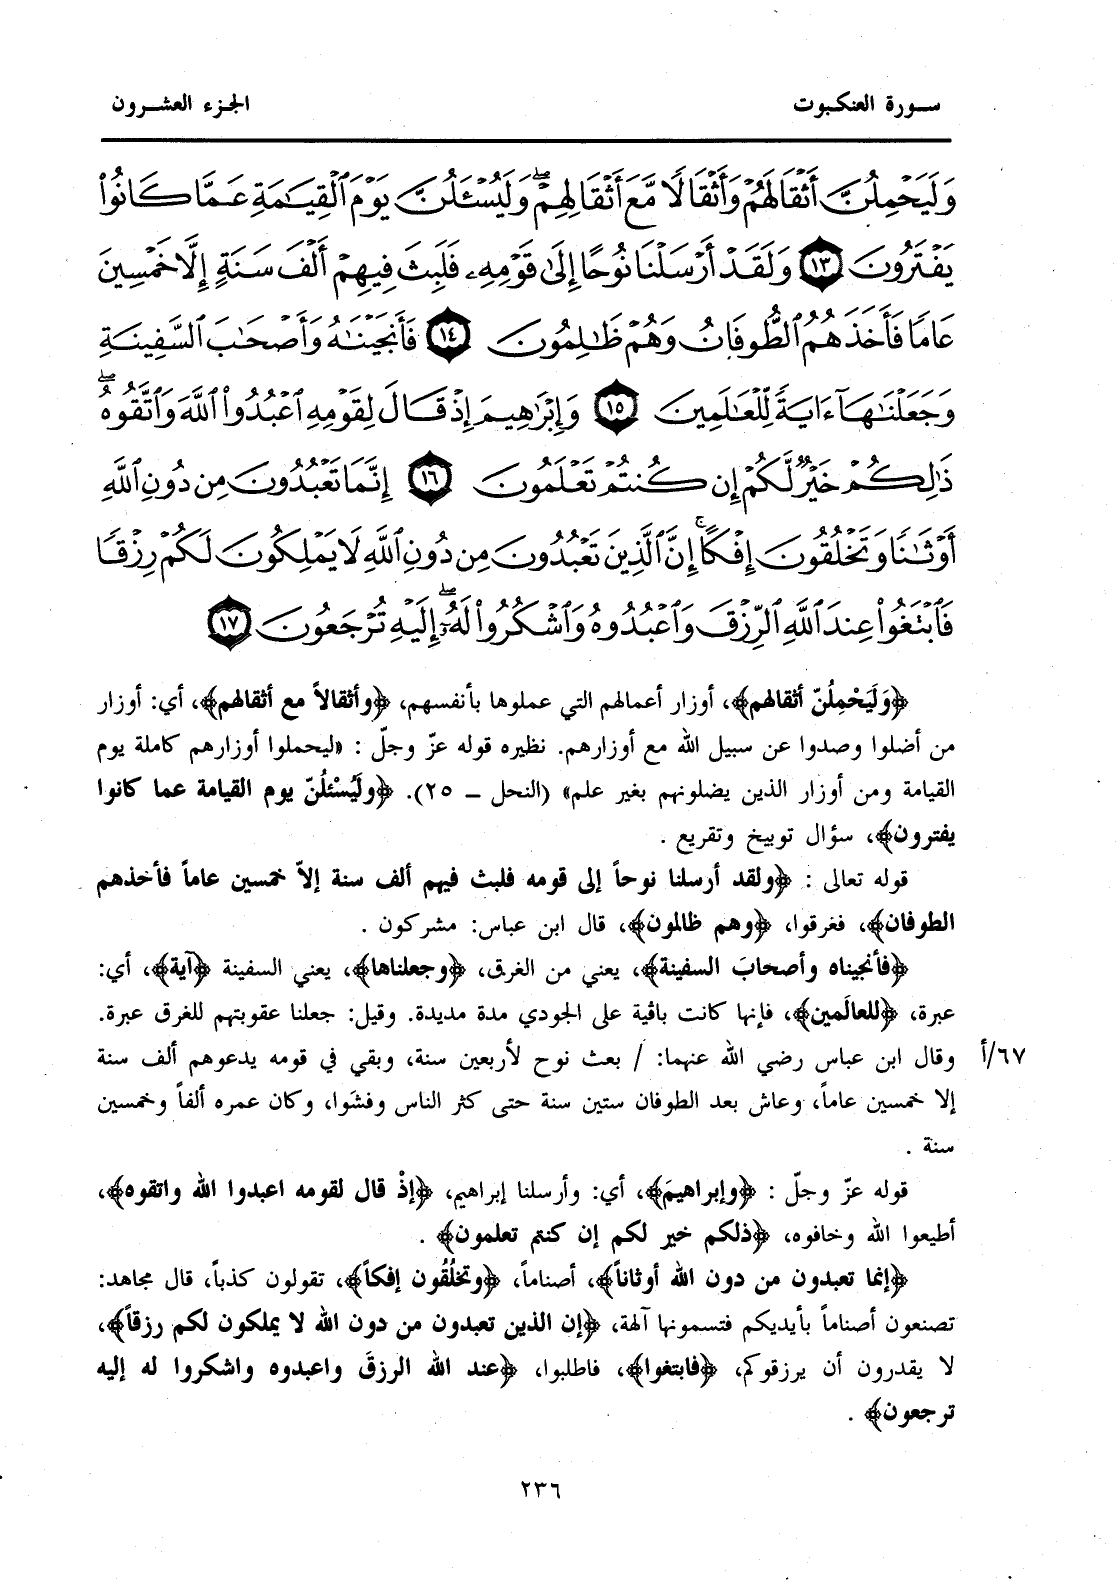 سورة العنكبوت
الجزء العشرون
وَلَيَحْمِلُنَّ أَثْقَالَهُمْ وَأَثْقَالًا مَّعَ أَثْقَالِهِمْ ۖ وَلَيُسْـَٔلُنَّ يَوْمَ ٱلْقِيَـٰمَةِ عَمَّا كَانُوا۟
يَفْتَرُونَ ١٣ وَلَقَدْ أَرْسَلْنَا نُوحًا إِلَىٰ قَوْمِهِۦ فَلَبِثَ فِيهِمْ أَلْفَ سَنَةٍ إِلَّا خَمْسِينَ
عَامًا فَأَخَذَهُمُ ٱلطُّوفَانُ وَهُمْ ظَـٰلِمُونَ ١٤ فَأَنجَيْنَـٰهُ وَأَصْحَـٰبَ ٱلسَّفِينَةِ
وَجَعَلْنَـٰهَآ ءَايَةً لِّلْعَـٰلَمِينَ ١٥ وَإِبْرَٰهِيمَ إِذْ قَالَ لِقَوْمِهِ ٱعْبُدُوا۟ ٱللَّهَ وَٱتَّقُوهُ ۖ
ذَٰلِكُمْ خَيْرٌ لَّكُمْ إِن كُنتُمْ تَعْلَمُونَ ١٦ إِنَّمَا تَعْبُدُونَ مِن دُونِ ٱللَّهِ
أَوْثَـٰنًا وَتَخْلُقُونَ إِفْكًا ۚ إِنَّ ٱلَّذِينَ تَعْبُدُونَ مِن دُونِ ٱللَّهِ لَا يَمْلِكُونَ لَكُمْ رِزْقًا
فَٱبْتَغُوا۟ عِندَ ٱللَّهِ ٱلرِّزْقَ وَٱعْبُدُوهُ وَٱشْكُرُوا۟ لَهُۥٓ ۖ إِلَيْهِ تُرْجَعُونَ ١٧
﴿وَلَيَحْمِلُنّ أثقالهم﴾، أوزار أعمالهم التي عملوها بأنفسهم، ﴿وأثقالاً مع أثقالهم﴾، أي: أوزار
من أضلوا وصدوا عن سبيل الله مع أوزارهم. نظيره قوله عزّ وجلّ : «ليحملوا أوزارهم كاملة يوم
القيامة ومن أوزار الذين يضلونهم بغير علم» (النحل – ٢٥). ﴿ولَيُسْئلُنّ يوم القيامة عما كانوا
يفترون﴾، سؤال توبيخ وتقريع .
قوله تعالى : ﴿ولقد أرسلنا نوحاً إلى قومه فلبث فيهم ألف سنة إلاّ خمسين عاماً فأخذهم
الطوفان﴾، فغرقوا، ﴿وهم ظالمون﴾، قال ابن عباس: مشركون .
﴿فأنجيناه وأصحابَ السفينة﴾، يعني من الغرق، ﴿وجعلناها﴾، يعني السفينة ﴿آية﴾، أي:
عبرة، ﴿للعالَمين﴾، فإنها كانت باقية على الجودي مدة مديدة. وقيل: جعلنا عقوبتهم للغرق عبرة.
وقال ابن عباس رضي الله عنهما: / بعث نوح لأربعين سنة، وبقي في قومه يدعوهم ألف سنة
٦٧/أ
إلا خمسين عاماً، وعاش بعد الطوفان ستين سنة حتى كثر الناس وفشَوا، وكان عمره ألفاً وخمسين
سنة .
قوله عزّ وجلّ : ﴿وإبراهيمَ﴾، أي: وأرسلنا إبراهيم، ﴿إذْ قال لقومه اعبدوا الله واتقوه﴾،
أطيعوا الله وخافوه، ﴿ذلكم خير لكم إن كنتم تعلمون﴾ .
﴿إنما تعبدون من دون الله أوثاناً﴾، أصناماً، ﴿وتخلُقُون إفكاً﴾، تقولون كذباً، قال مجاهد:
تصنعون أصناماً بأيديكم فتسمونها آلهة، ﴿إن الذين تعبدون من دون الله لا يملكون لكم رزقاً﴾،
لا يقدرون أن يرزقوكم، ﴿فابتغوا﴾، فاطلبوا، ﴿عند الله الرزقَ واعبدوه واشكروا له إليه
ترجعون﴾ .
٢٣٦